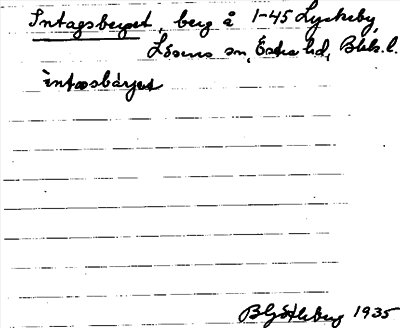 Intagsberget, berg å 1-45 Lyckeby,
Lösens sn, Östra hd, Blek. l.
intasbärjet
BGötleberg 1935